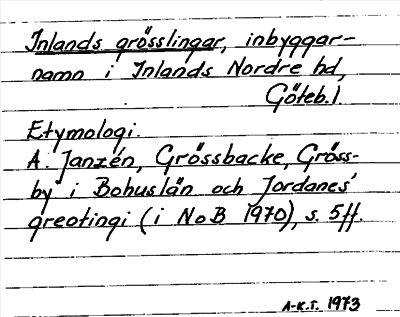 Inlands grösslingar, inbyggar-
namn i Inlands Nordre hd,
Göteb.l.
Etymologi.
A. Janzén, Grössbacke, Gröss-
by i Bohuslän och Jordanes'
greotingi (i NoB 1970), s. 5ff.
A-K.T. 1973